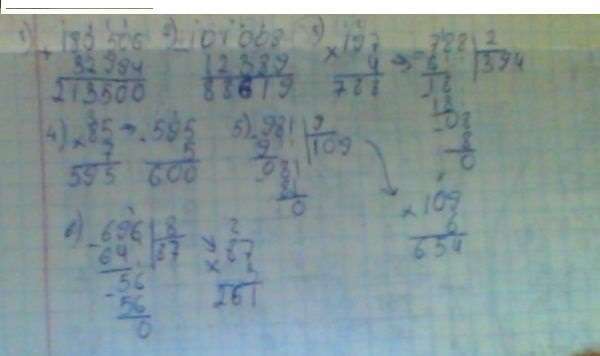 1) + 180506
32994
213500
2) - 101008
12389
88619
3) × 197
4
788
788 | 2
394
18
18
08
8
0
4) × 85
7
595
595
5
600
5) 981 | 9
9
109
081
81
0
× 109
6
654
6) - 696 | 8
64
87
- 56
56
0
× 87
3
261